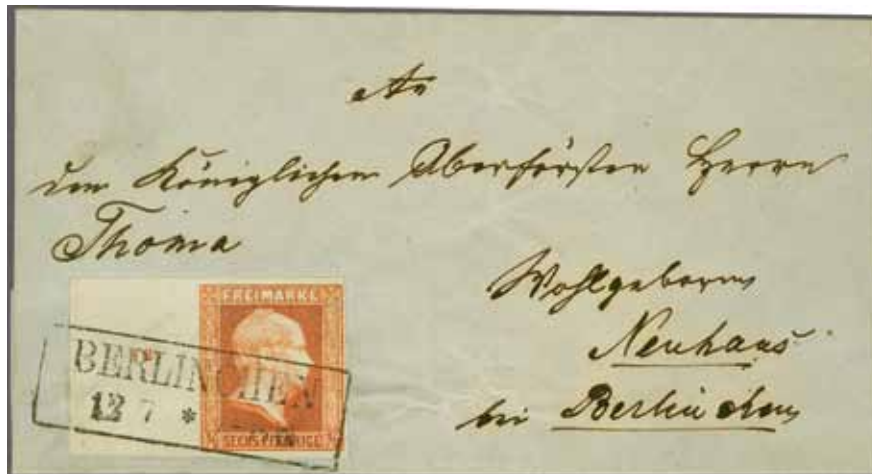 An
den Königlichen Oberförster Herrn
Thoma
Wohlgeboren
Neuhaus
bei Berlinchen
FREIMARKE
SECHS PFENNIGE
BERLINCHEN
12 7 *